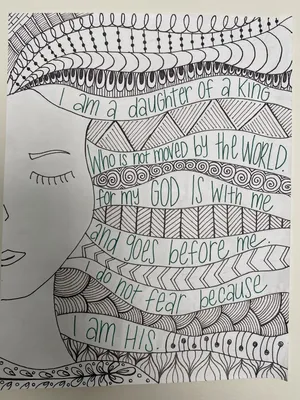 I am a daughter of a King
Who is not moved by the WORLD.
for my GOD IS with me
and goes before me.
I do not fear because
I am His.